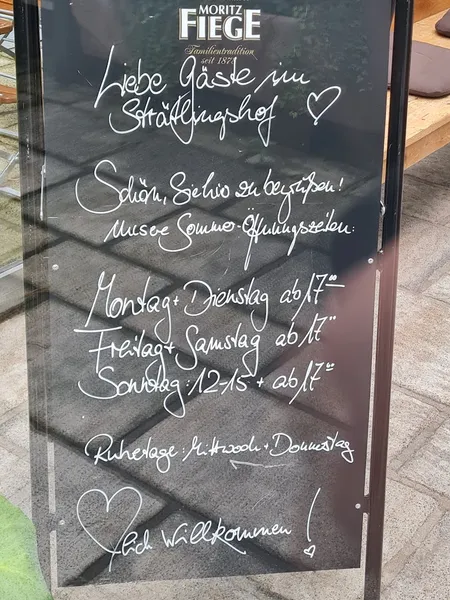 MORITZ
FIEGE
Familientradition
seit 1878
Liebe Gäste im
Strätlingshof ♡
Schön, Sie hier zu begrüßen!
Unsere Sommer-Öffnungszeiten:
Montag + Dienstag ab 17⁰⁰
Freitag + Samstag ab 17⁰⁰
Sonntag: 12-15 + ab 17⁰⁰
Ruhetage: Mittwoch + Donnerstag
♡lich Willkommen!